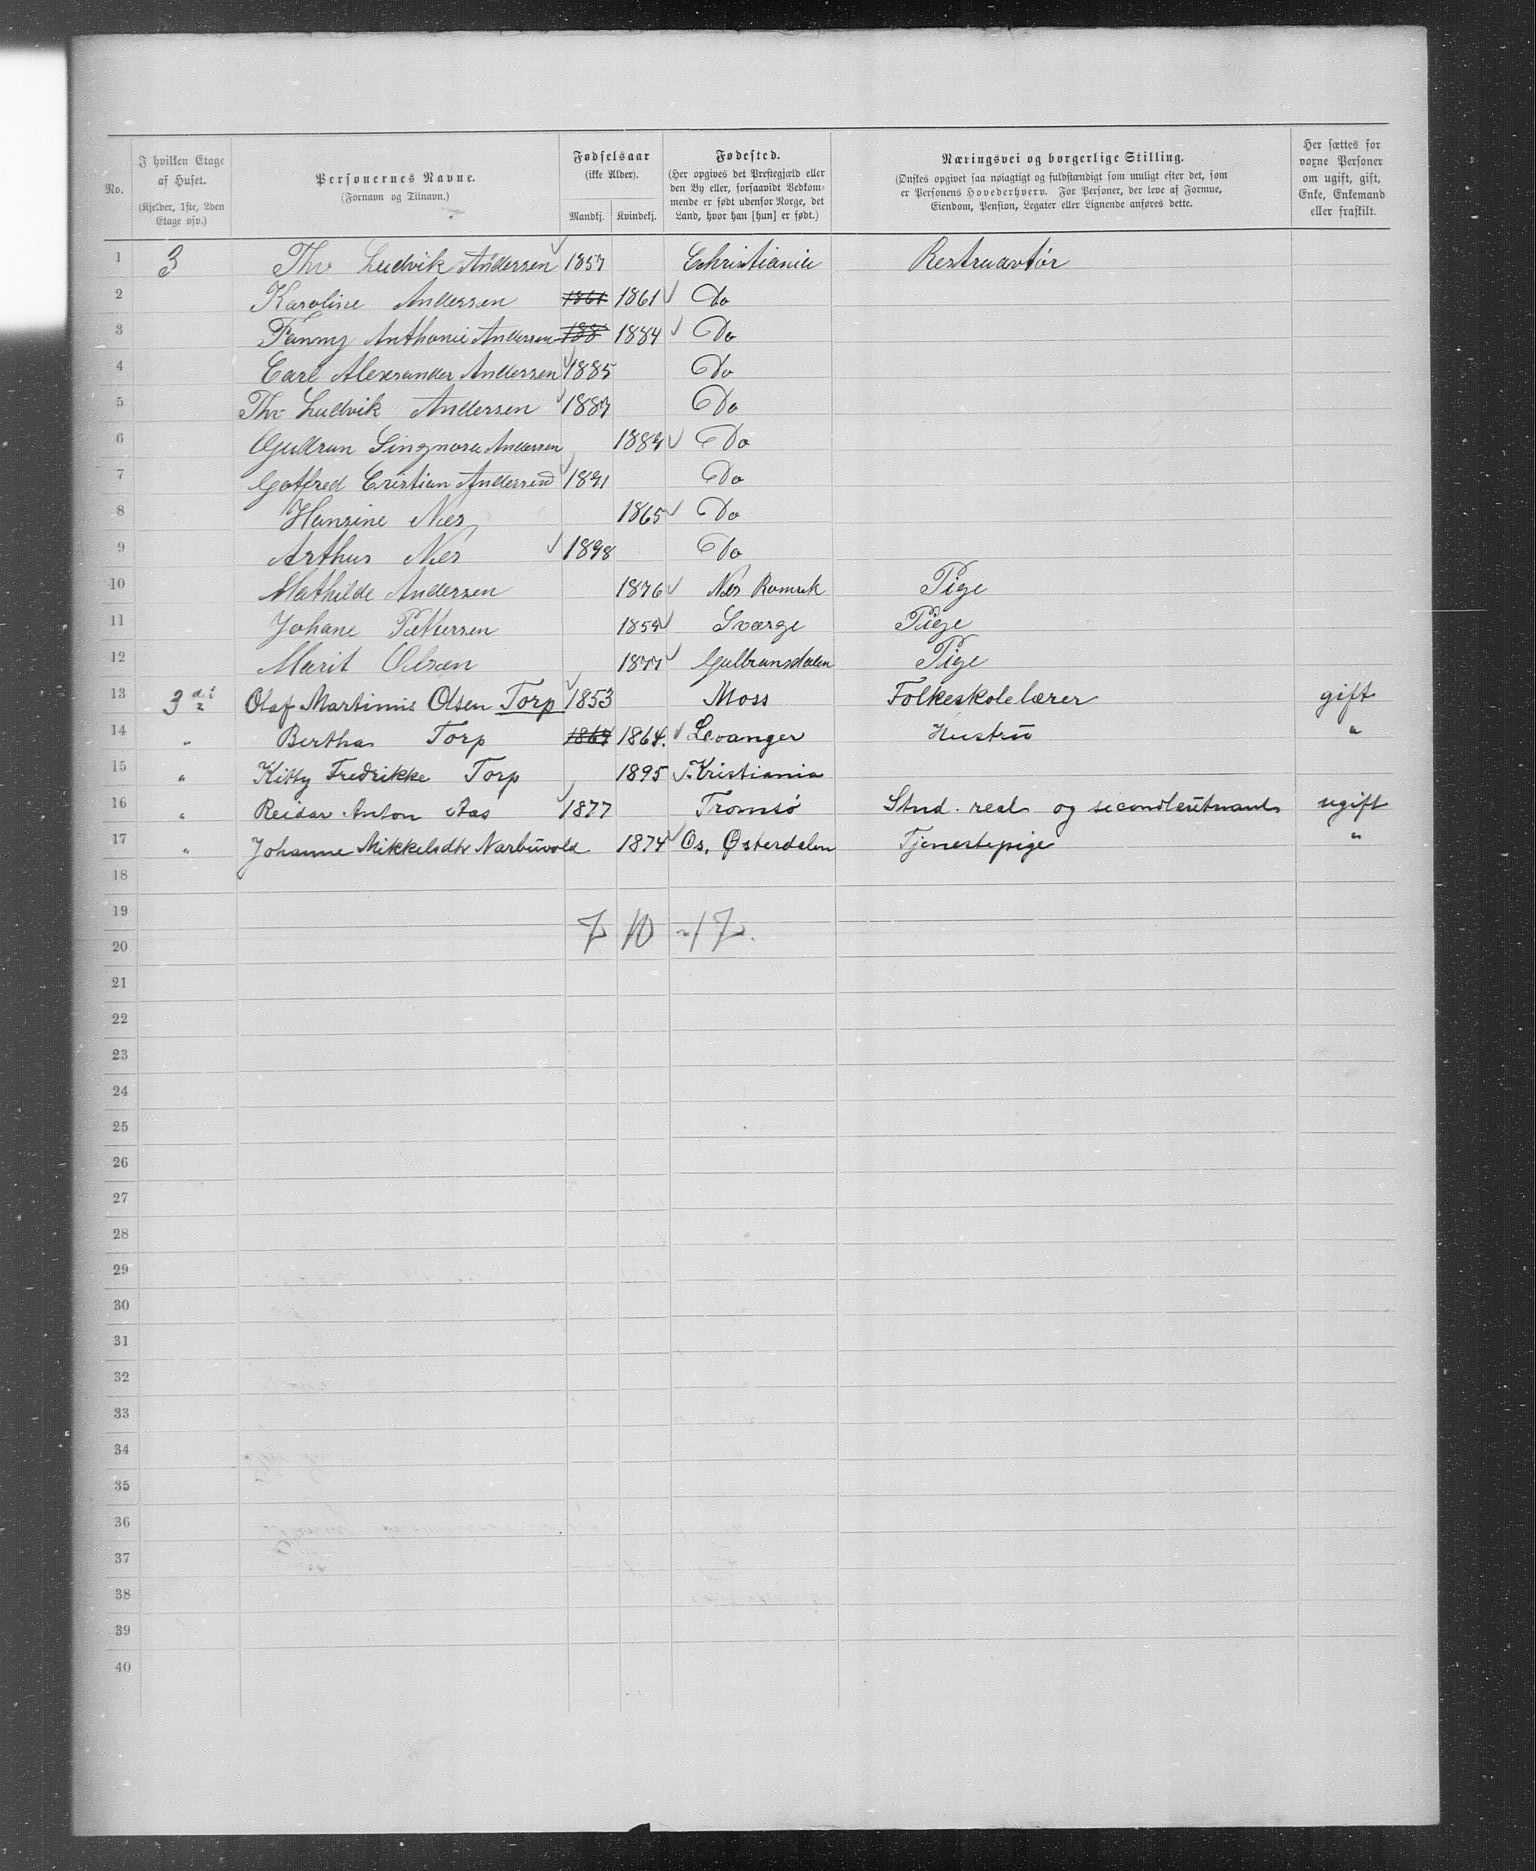 No.
I hvilken Etage af Huset.
(Kjelder, 1ste, 2den Etage osv.)
Personernes Navne.
(Fornavn og Tilnavn.)
Fødselsaar
(ikke Alder).
Mandkj. Kvindekj.
Fødested.
(Her opgives det Prestegjæld eller den By eller, forsaavidt Vedkommende er født udenfor Norge, det Land, hvor han [hun] er født.)
Næringsvei og borgerlige Stilling.
(Ønskes opgivet saa nøiagtigt og fuldstændigt som muligt efter det, som er Personens Hovederhverv. For Personer, der leve af Formue, Eiendom, Pension, Legater eller Lignende anføres dette.)
Her sættes for voxne Personer om ugift, gift, Enke, Enkemand eller fraskilt.
1 3 Thv Ludvik Andersen 1857 Christiania Restrauatør
2 Karoline Andersen 1861 1861 Do
3 Fanny Anthonie Andersen 188 1884 Do
4 Carl Alexsander Andersen 1885 Do
5 Thv Ludvik Andersen 1887 Do
6 Gudrun Singnora Andersen 1889 Do
7 Gotfred Cristian Andersen 1891 Do
8 Hansine Næs 1865 Do
9 Arthur Næs 1898 Do
10 Mathilde Andersen 1876 Næs Romrik Pige
11 Johane Pettersen 1859 Sværge Pige
12 Marit Olsen 1877 Gulbransdalen Pige
13 3 Olaf Martinius Olsen Torp 1853 Moss Folkeskolelærer gift
14 " Bertha Torp 1864 1864. Levanger Hustru "
15 " Kitty Fredrikke Torp 1895 Kristiania
16 " Reidar Anton Aas 1877 Tromsø Stud. real og secondleutnant ugift
17 " Johanne Mikkelsdtr Narbuvold 1874 Os, Østerdalen Tjenestepige "
18
19
7 10 - 17.
20
21
22
23
24
25
26
27
28
29
30
31
32
33
34
35
36
37
38
39
40